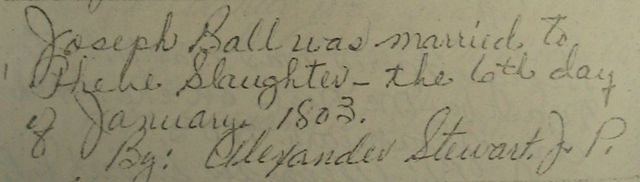 Joseph Ball was married to
Phebe Slaughter - the 6th day
of January, 1803.
By: Alexander Stewart. J. P.